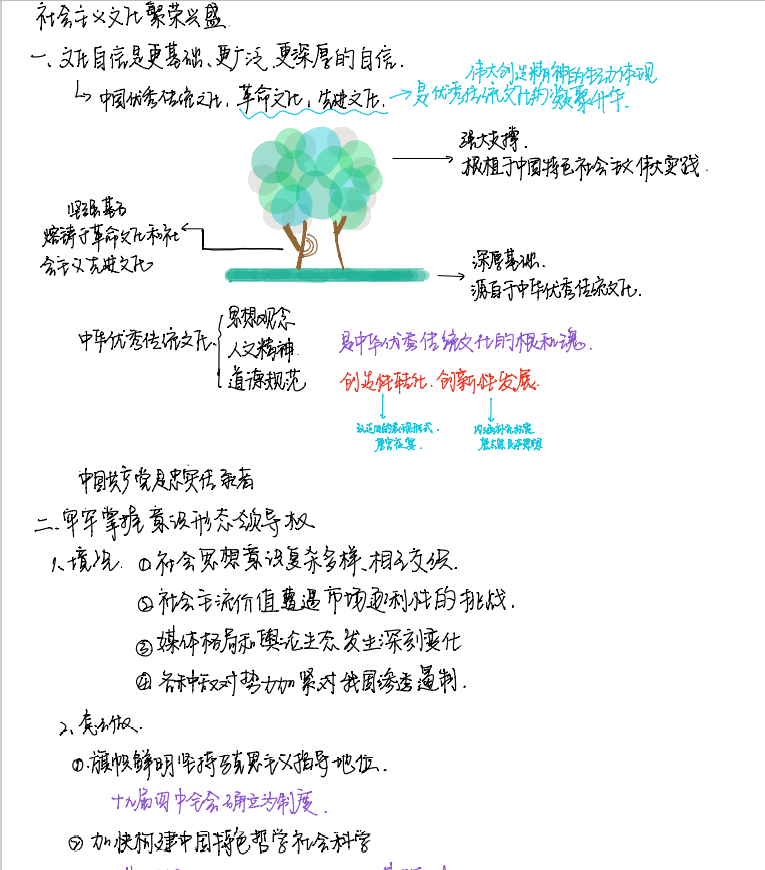 社会主义文化繁荣兴盛
一、文化自信是更基础、更广泛、更深厚的自信.
伟大创造精神的生动体现
中国优秀传统文化,革命文化,先进文化.
是优秀传统文化的凝聚升华
强大支撑.
根植于中国特色社会主义伟大实践.
坚强基石
熔铸于革命文化和社
会主义先进文化
深厚基础.
源自于中华优秀传统文化.
中华优秀传统文化
思想观念
人文精神
道德规范
是中华优秀传统文化的根和魂.
创造性转化.创新性发展.
中国共产党是忠实传承者
二、牢牢掌握意识形态领导权
1、境况. ①社会思想意识复杂多样、相互交织.
②社会主流价值遭遇市场逐利性的挑战.
③媒体格局和舆论生态发生深刻变化
④各种敌对势力加紧对我国渗透遏制.
2、怎么做.
①.旗帜鲜明坚持马克思主义指导地位.
十九届四中全会确立为制度.
② 加快构建中国特色哲学社会科学